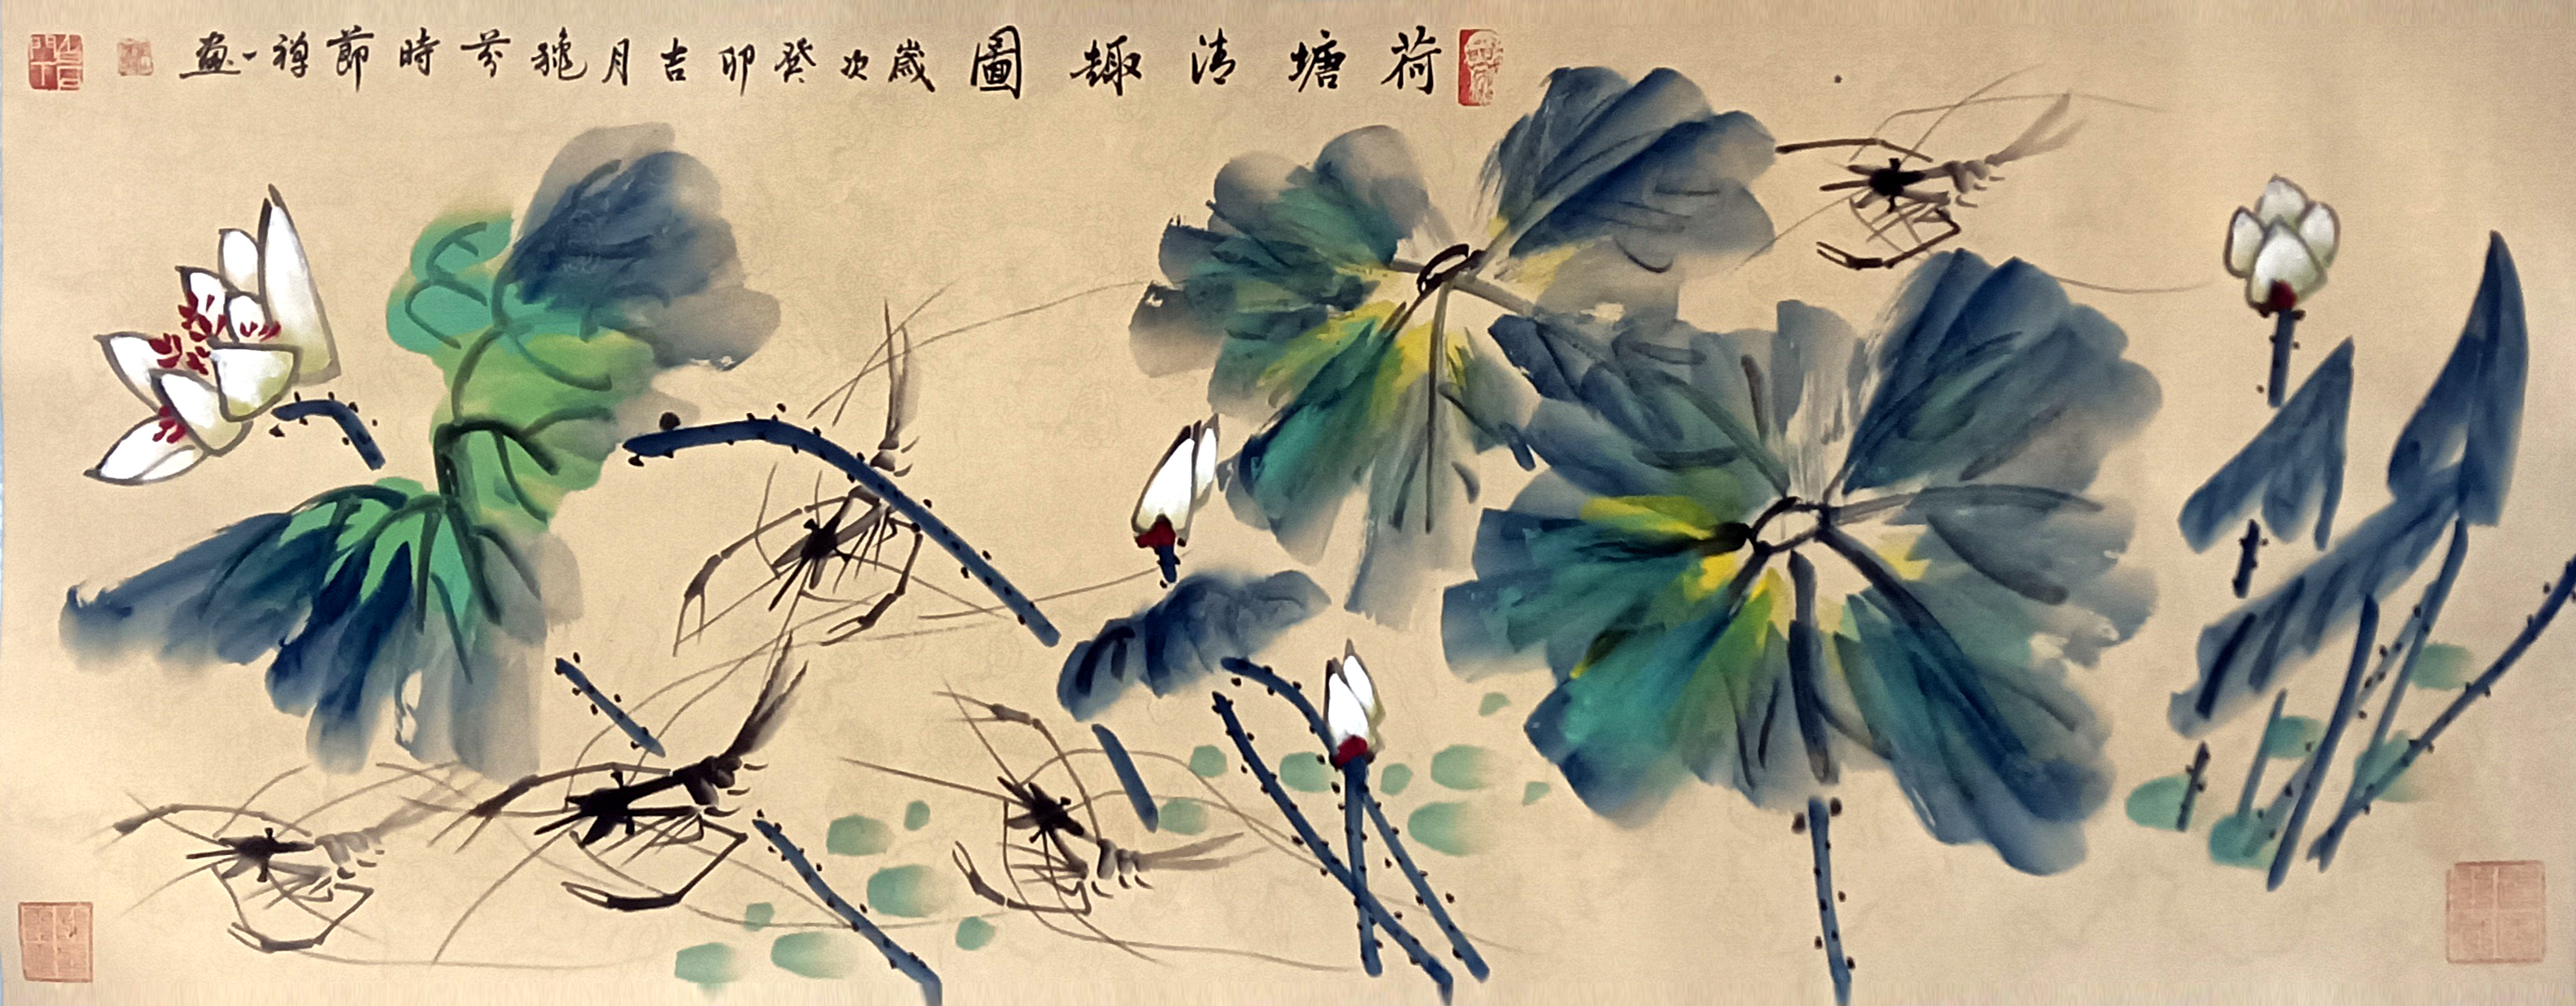 荷塘清趣圖歲次癸卯吉月穐芬時節禅一画